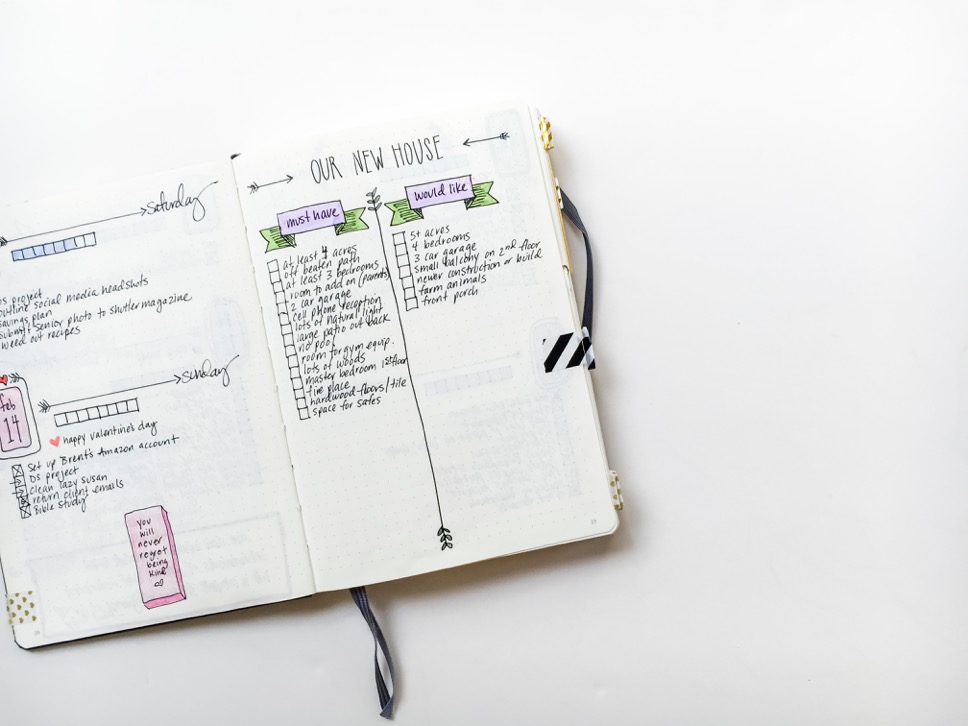 Saturday
DS project
outline social media headshots
savings plan
submit senior photo to shutter magazine
weed out recipes
feb
14
Sunday
happy valentine's day
Set up Brent's Amazon account
DS project
clean lazy susan
return client emails
Bible Study
you
will
never
regret
being
kind
OUR NEW HOUSE
must have
at least 4 acres
off beaten path
at least 3 bedrooms
room to add on (parents)
2 car garage
cell phone reception
lots of natural light
large patio out back
no pool
room for gym equip.
lots of woods
master bedroom 1st floor
fire place
hardwood floors/tile
space for safes
would like
5+ acres
4 bedrooms
3 car garage
small balcony on 2nd floor
newer construction or build
farm animals
front porch